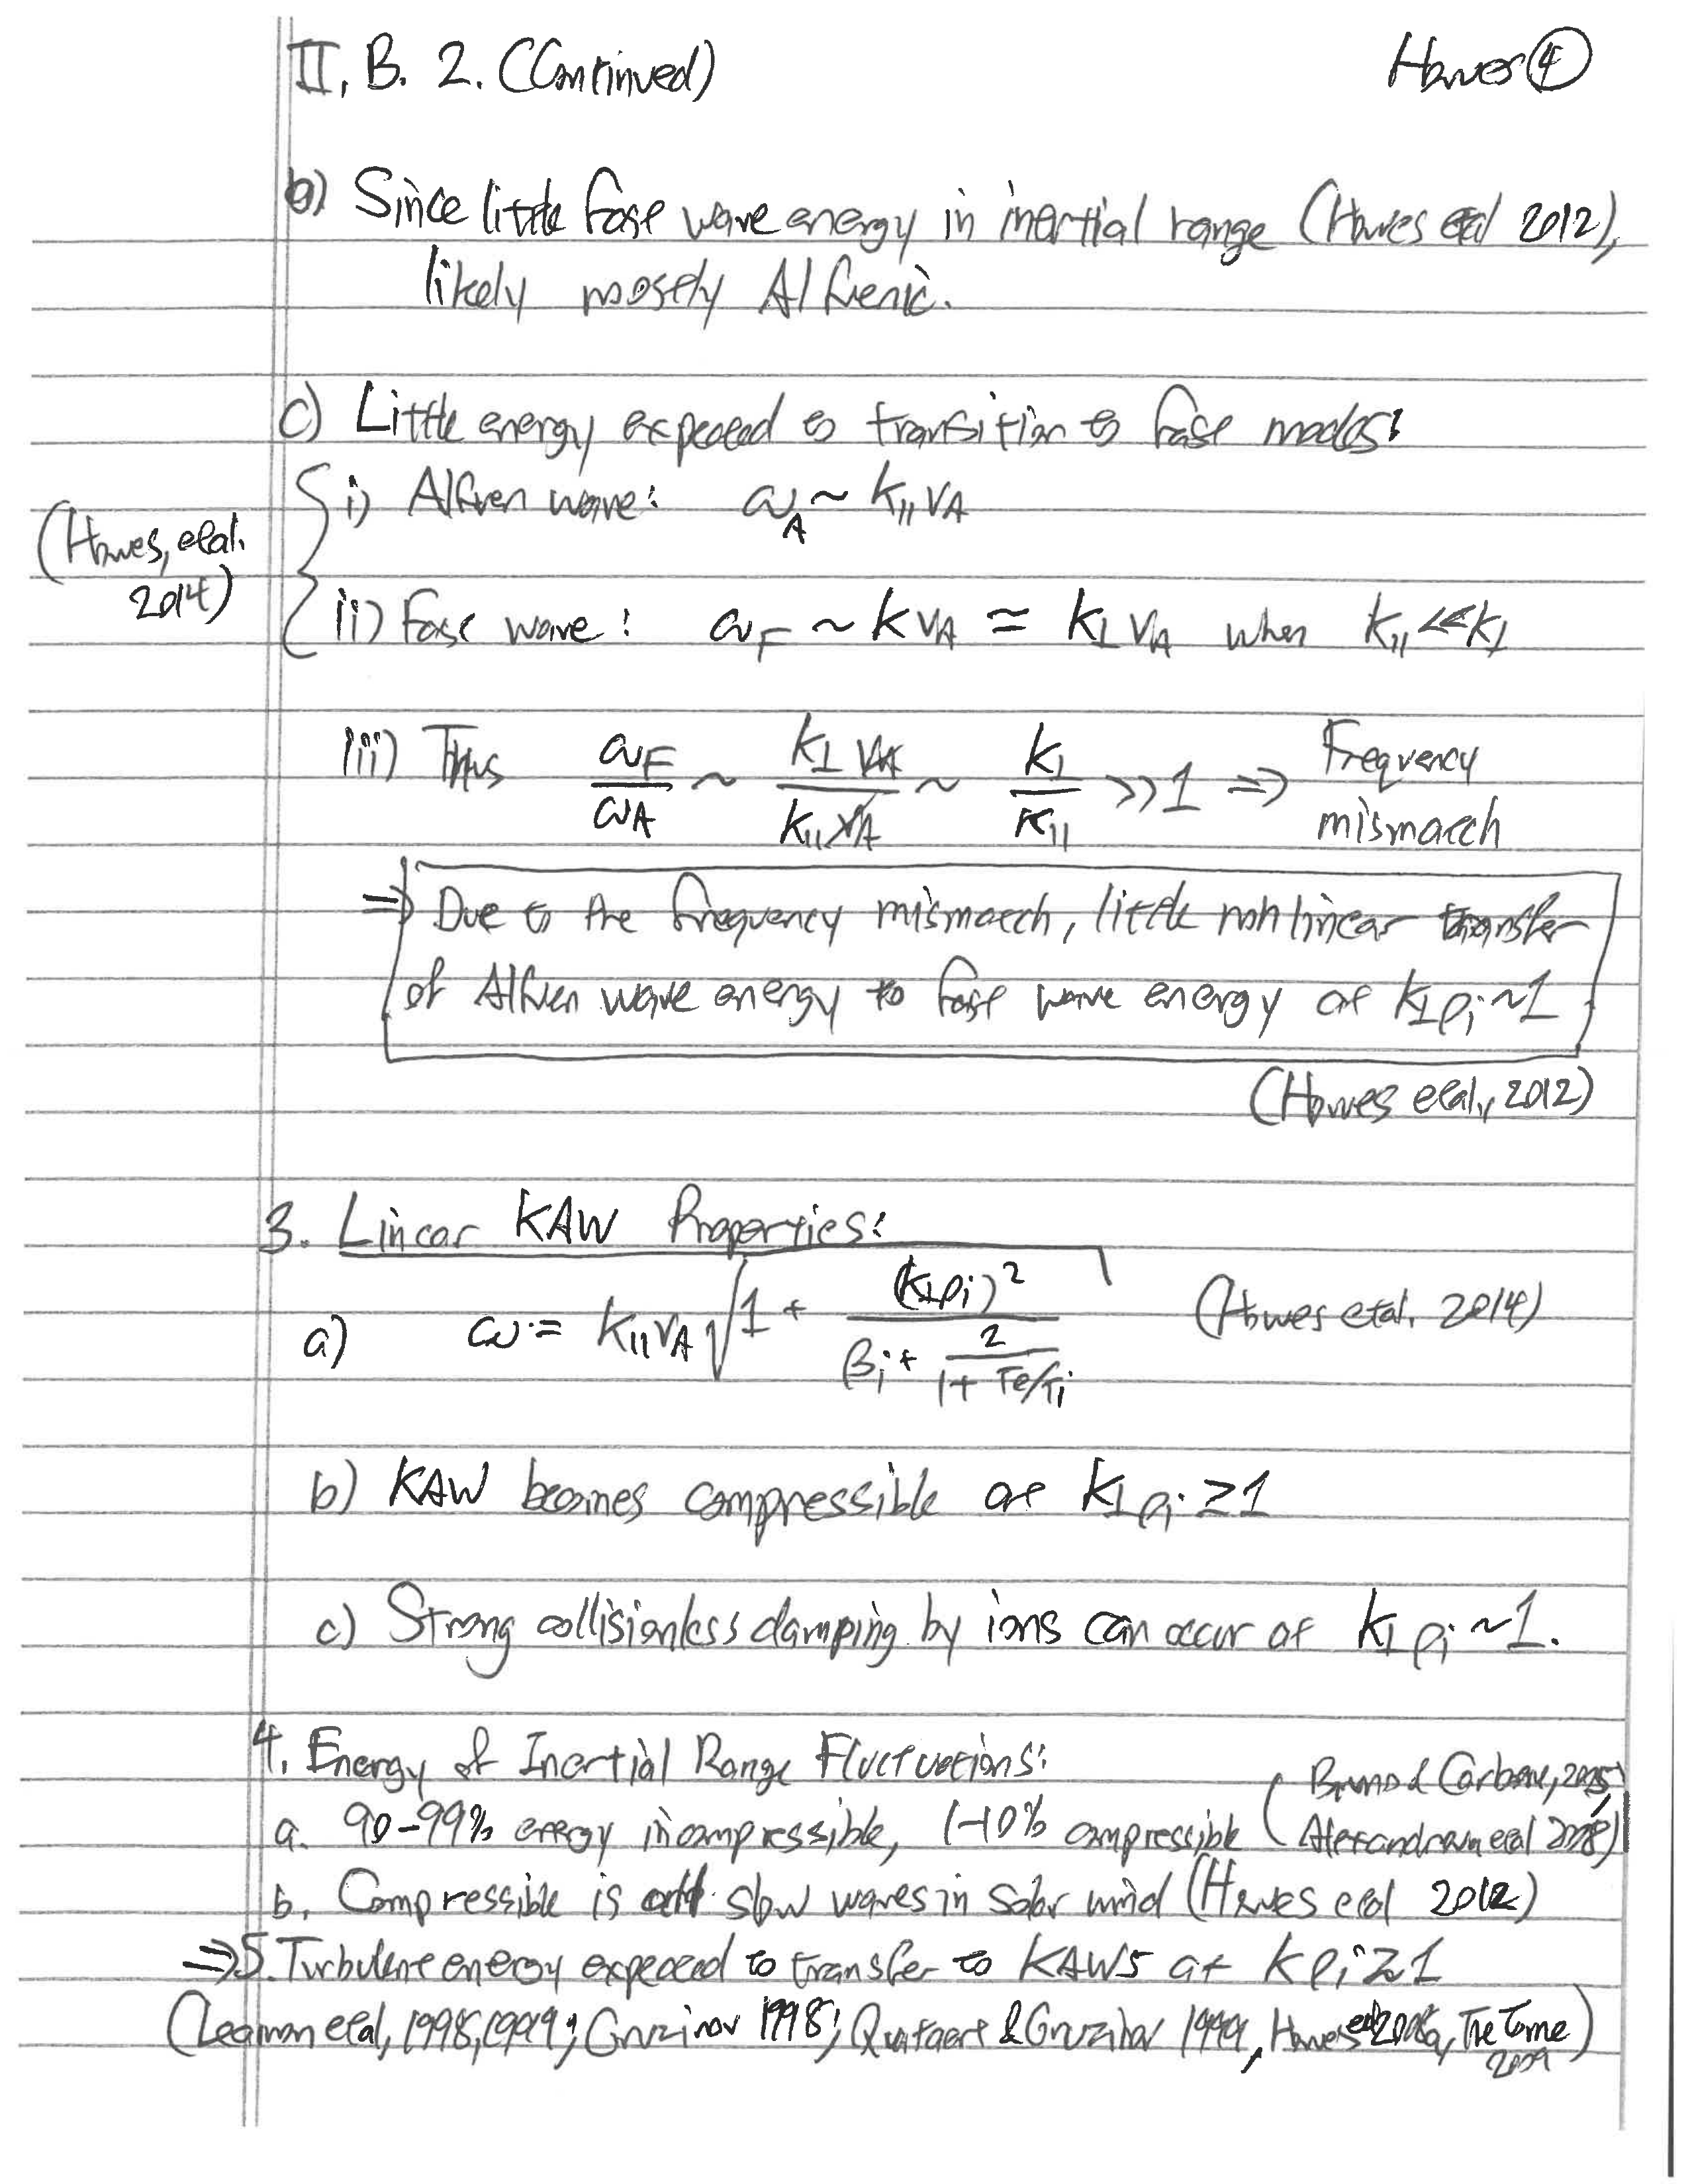 II. B. 2. (Continued) Howes ④
b) Since little fast wave energy in inertial range (Howes et al 2012),
likely mostly Alfvenic.
c) Little energy expected to transition to fast modes:
(Howes, et al. 2014)
i) Alfven wave: ω_A ~ k_∥ v_A
ii) Fast wave: ω_F ~ k v_A ≃ k_⊥ v_A when k_∥ ≪ k_⊥
iii) Thus ω_F/ω_A ~ k_⊥ v_A / k_∥ v_A ~ k_⊥/k_∥ >> 1 ⇒ Frequency mismatch
⇒ Due to the frequency mismatch, little nonlinear transfer
of Alfven wave energy to fast wave energy at k_⊥ρ_i ~ 1
(Howes et al., 2012)
3. Linear KAW Properties:
a) ω = k_∥ v_A √(1 + (k_⊥ρ_i)² / (β_i + 2/(1 + Te/Ti))) (Howes et al. 2014)
b) KAW becomes compressible at k_⊥ρ_i ≳ 1
c) Strong collisionless damping by ions can occur at k_⊥ρ_i ~ 1.
4. Energy of Inertial Range Fluctuations:
a. 90-99% energy incompressible, 1-10% compressible (Bruno & Carbone, 2005, Alexandrova et al 2008)
b. Compressible is all slow waves in solar wind (Howes et al 2012)
⇒ 5. Turbulent energy expected to transfer to KAWs at kρ_i ≳ 1
(Leamon et al, 1998, 1999; Gruzinov 1998; Quataert & Gruzinov 1999, Howes et al 2008a, The Tome 2009)